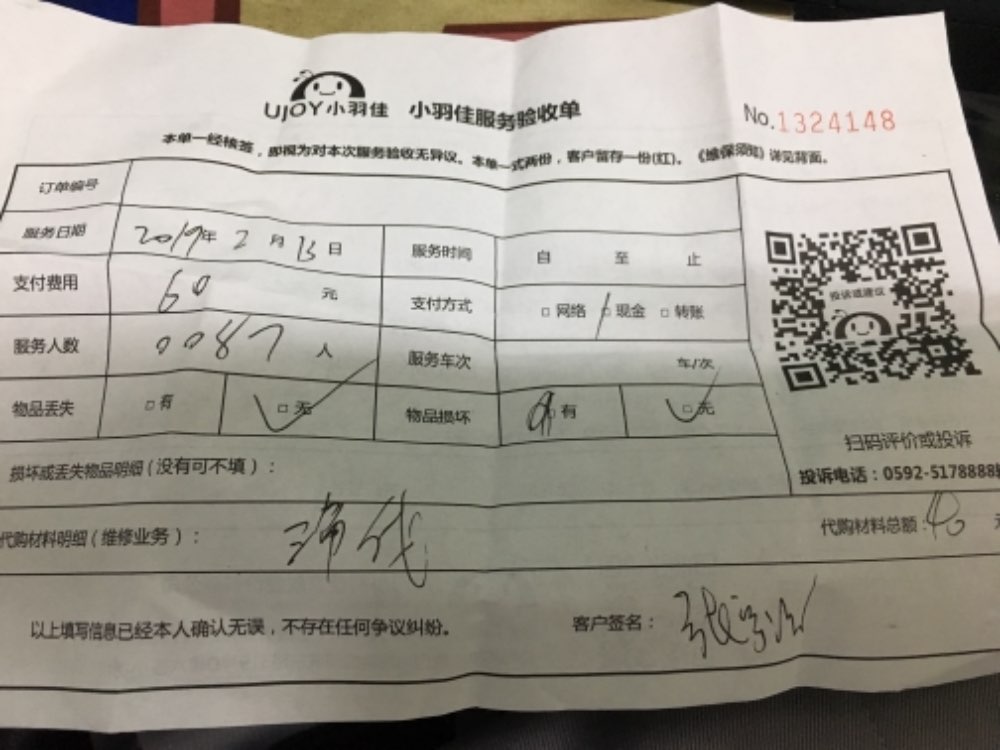 UJOY小羽佳 小羽佳服务验收单
No.1324148
本单一经核签，即视为对本次服务验收无异议。本单一式两份，客户留存一份(红)。《维保须知》详见背面。
订单编号
服务日期 2019年 2月 13日 服务时间 自 至 止
支付费用 60 元 支付方式 □网络 □现金 □转账
服务人数 0087 人 服务车次 车/次
物品丢失 □有 □无 物品损坏 □有 □无
投诉或建议
扫码评价或投诉
投诉电话：0592-5178888
损坏或丢失物品明细（没有可不填）：
代购材料明细（维修业务）： 代购材料总额：40 元
以上填写信息已经本人确认无误，不存在任何争议纠纷。 客户签名：